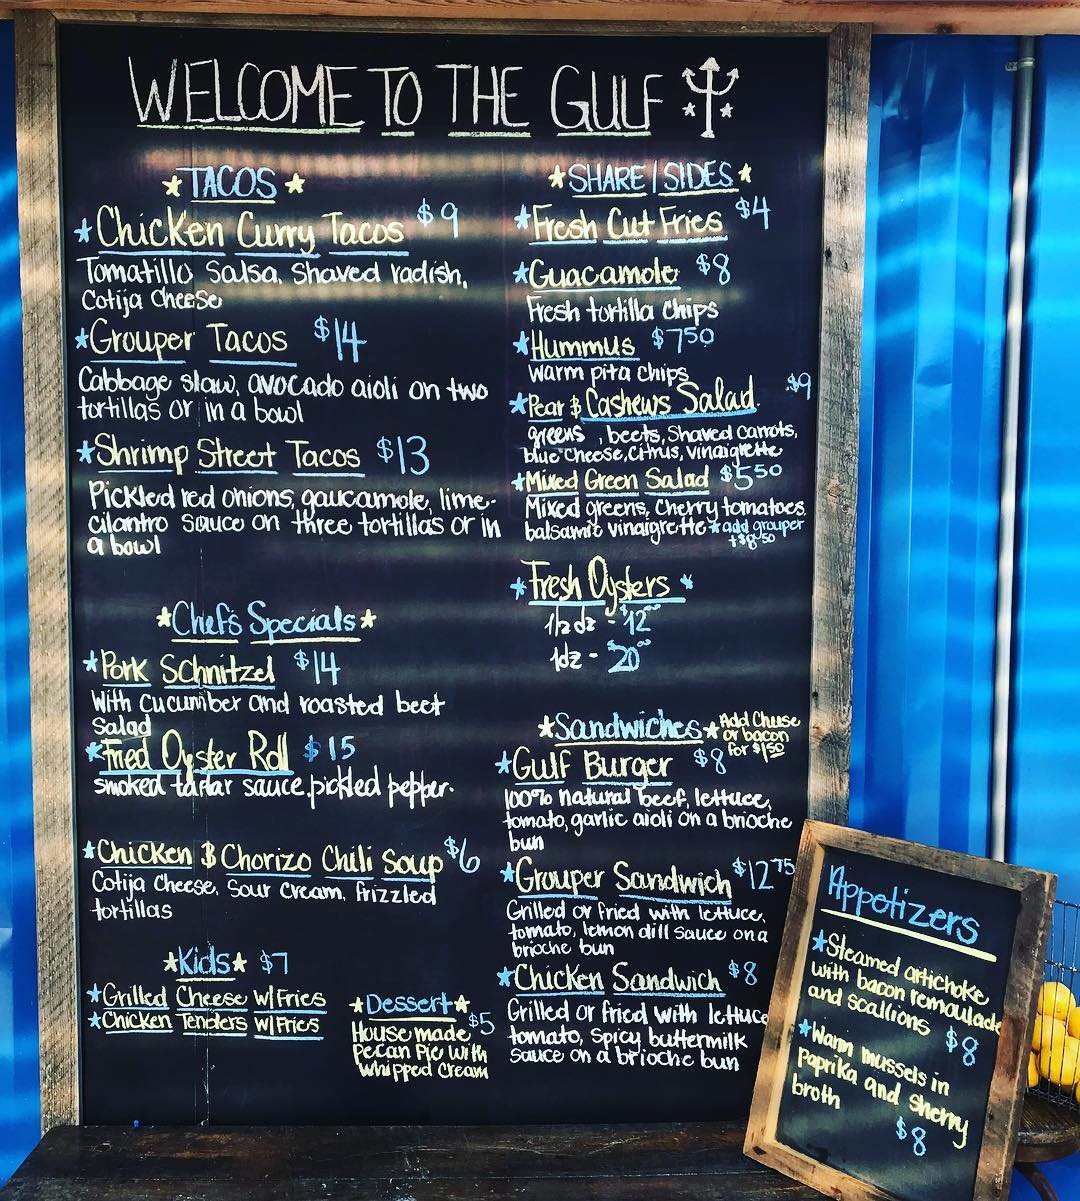 WELCOME TO THE GULF
TACOS
Chicken Curry Tacos $9
Tomatillo Salsa, Shaved radish,
Cotija Cheese
Grouper Tacos $14
Cabbage slaw, avocado aioli on two
tortillas or in a bowl
Shrimp Street Tacos $13
Pickled red onions, gaucamole, lime-
cilantro sauce on three tortillas or in
a bowl
Chef's Specials
Pork Schnitzel $14
With cucumber and roasted beet
Salad
Fried Oyster Roll $15
smoked tartar sauce, pickled pepper.
Chicken & Chorizo Chili Soup $6
Cotija Cheese, Sour Cream, frizzled
tortillas
Kids $7
Grilled Cheese W/Fries
Chicken Tenders W/Fries
Dessert
$5
House made
Pecan Pie with
whipped cream
SHARE/SIDES
Fresh Cut Fries $4
Guacamole $8
Fresh tortilla chips
Hummus $7.50
Warm pita chips
Pear & Cashews Salad $9
greens, beets, Shaved Carrots,
blue cheese, citrus, vinaigrette
Mixed Green Salad $5.50
Mixed greens, Cherry tomatoes,
balsamic vinaigrette *add grouper
+$8.50
Fresh Oysters
1/2 dz - $12.00
1dz - $20.00
Sandwiches
Add Cheese
or bacon
for $1.50
Gulf Burger $8
100% natural beef, lettuce,
tomato, garlic aioli on a brioche
bun
Grouper Sandwich $12.75
Grilled or fried with lettuce,
tomato, lemon dill sauce on a
brioche bun
Chicken Sandwich $8
Grilled or fried with lettuce
tomato, spicy buttermilk
sauce on a brioche bun
Appetizers
Steamed artichoke
with bacon remoulade
and scallions $8
Warm mussels in
paprika and sherry
broth
$8